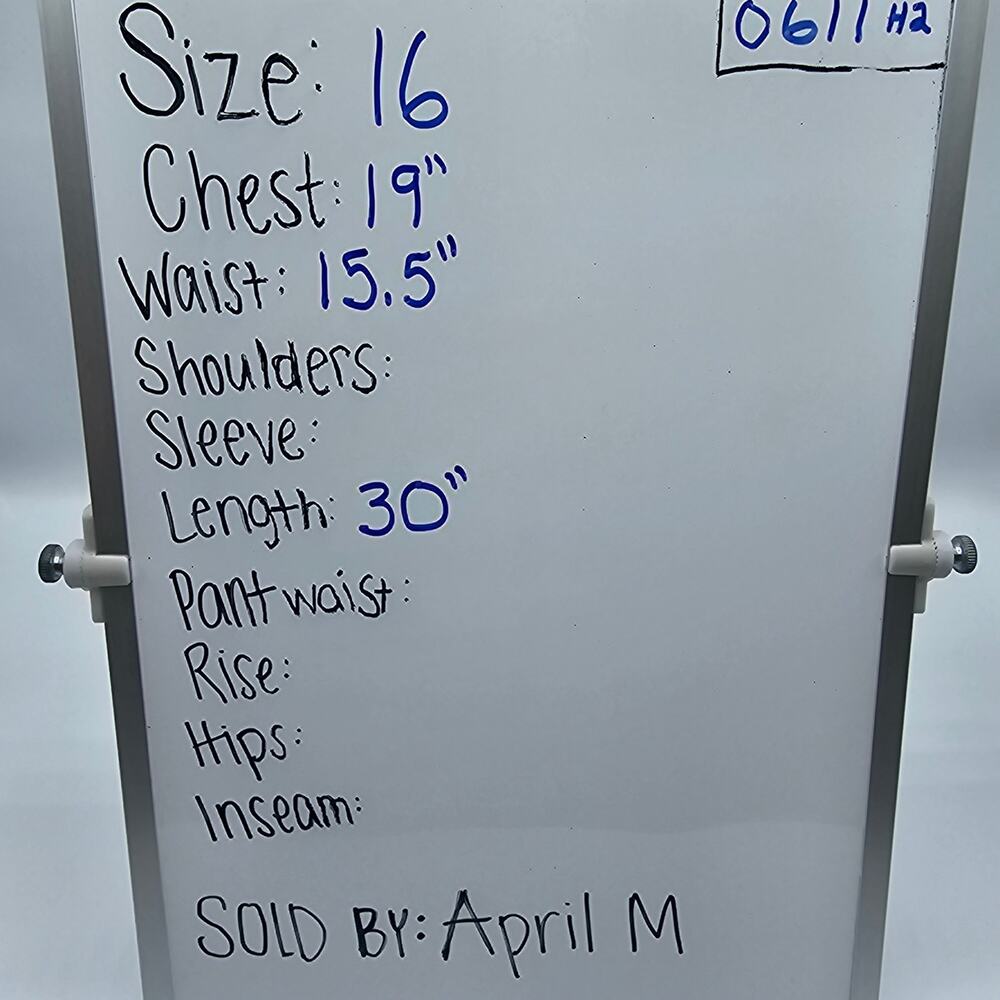 0611 H2
Size: 16
Chest: 19"
Waist: 15.5"
Shoulders:
Sleeve:
Length: 30"
Pant waist:
Rise:
Hips:
Inseam:
SOLD BY: April M